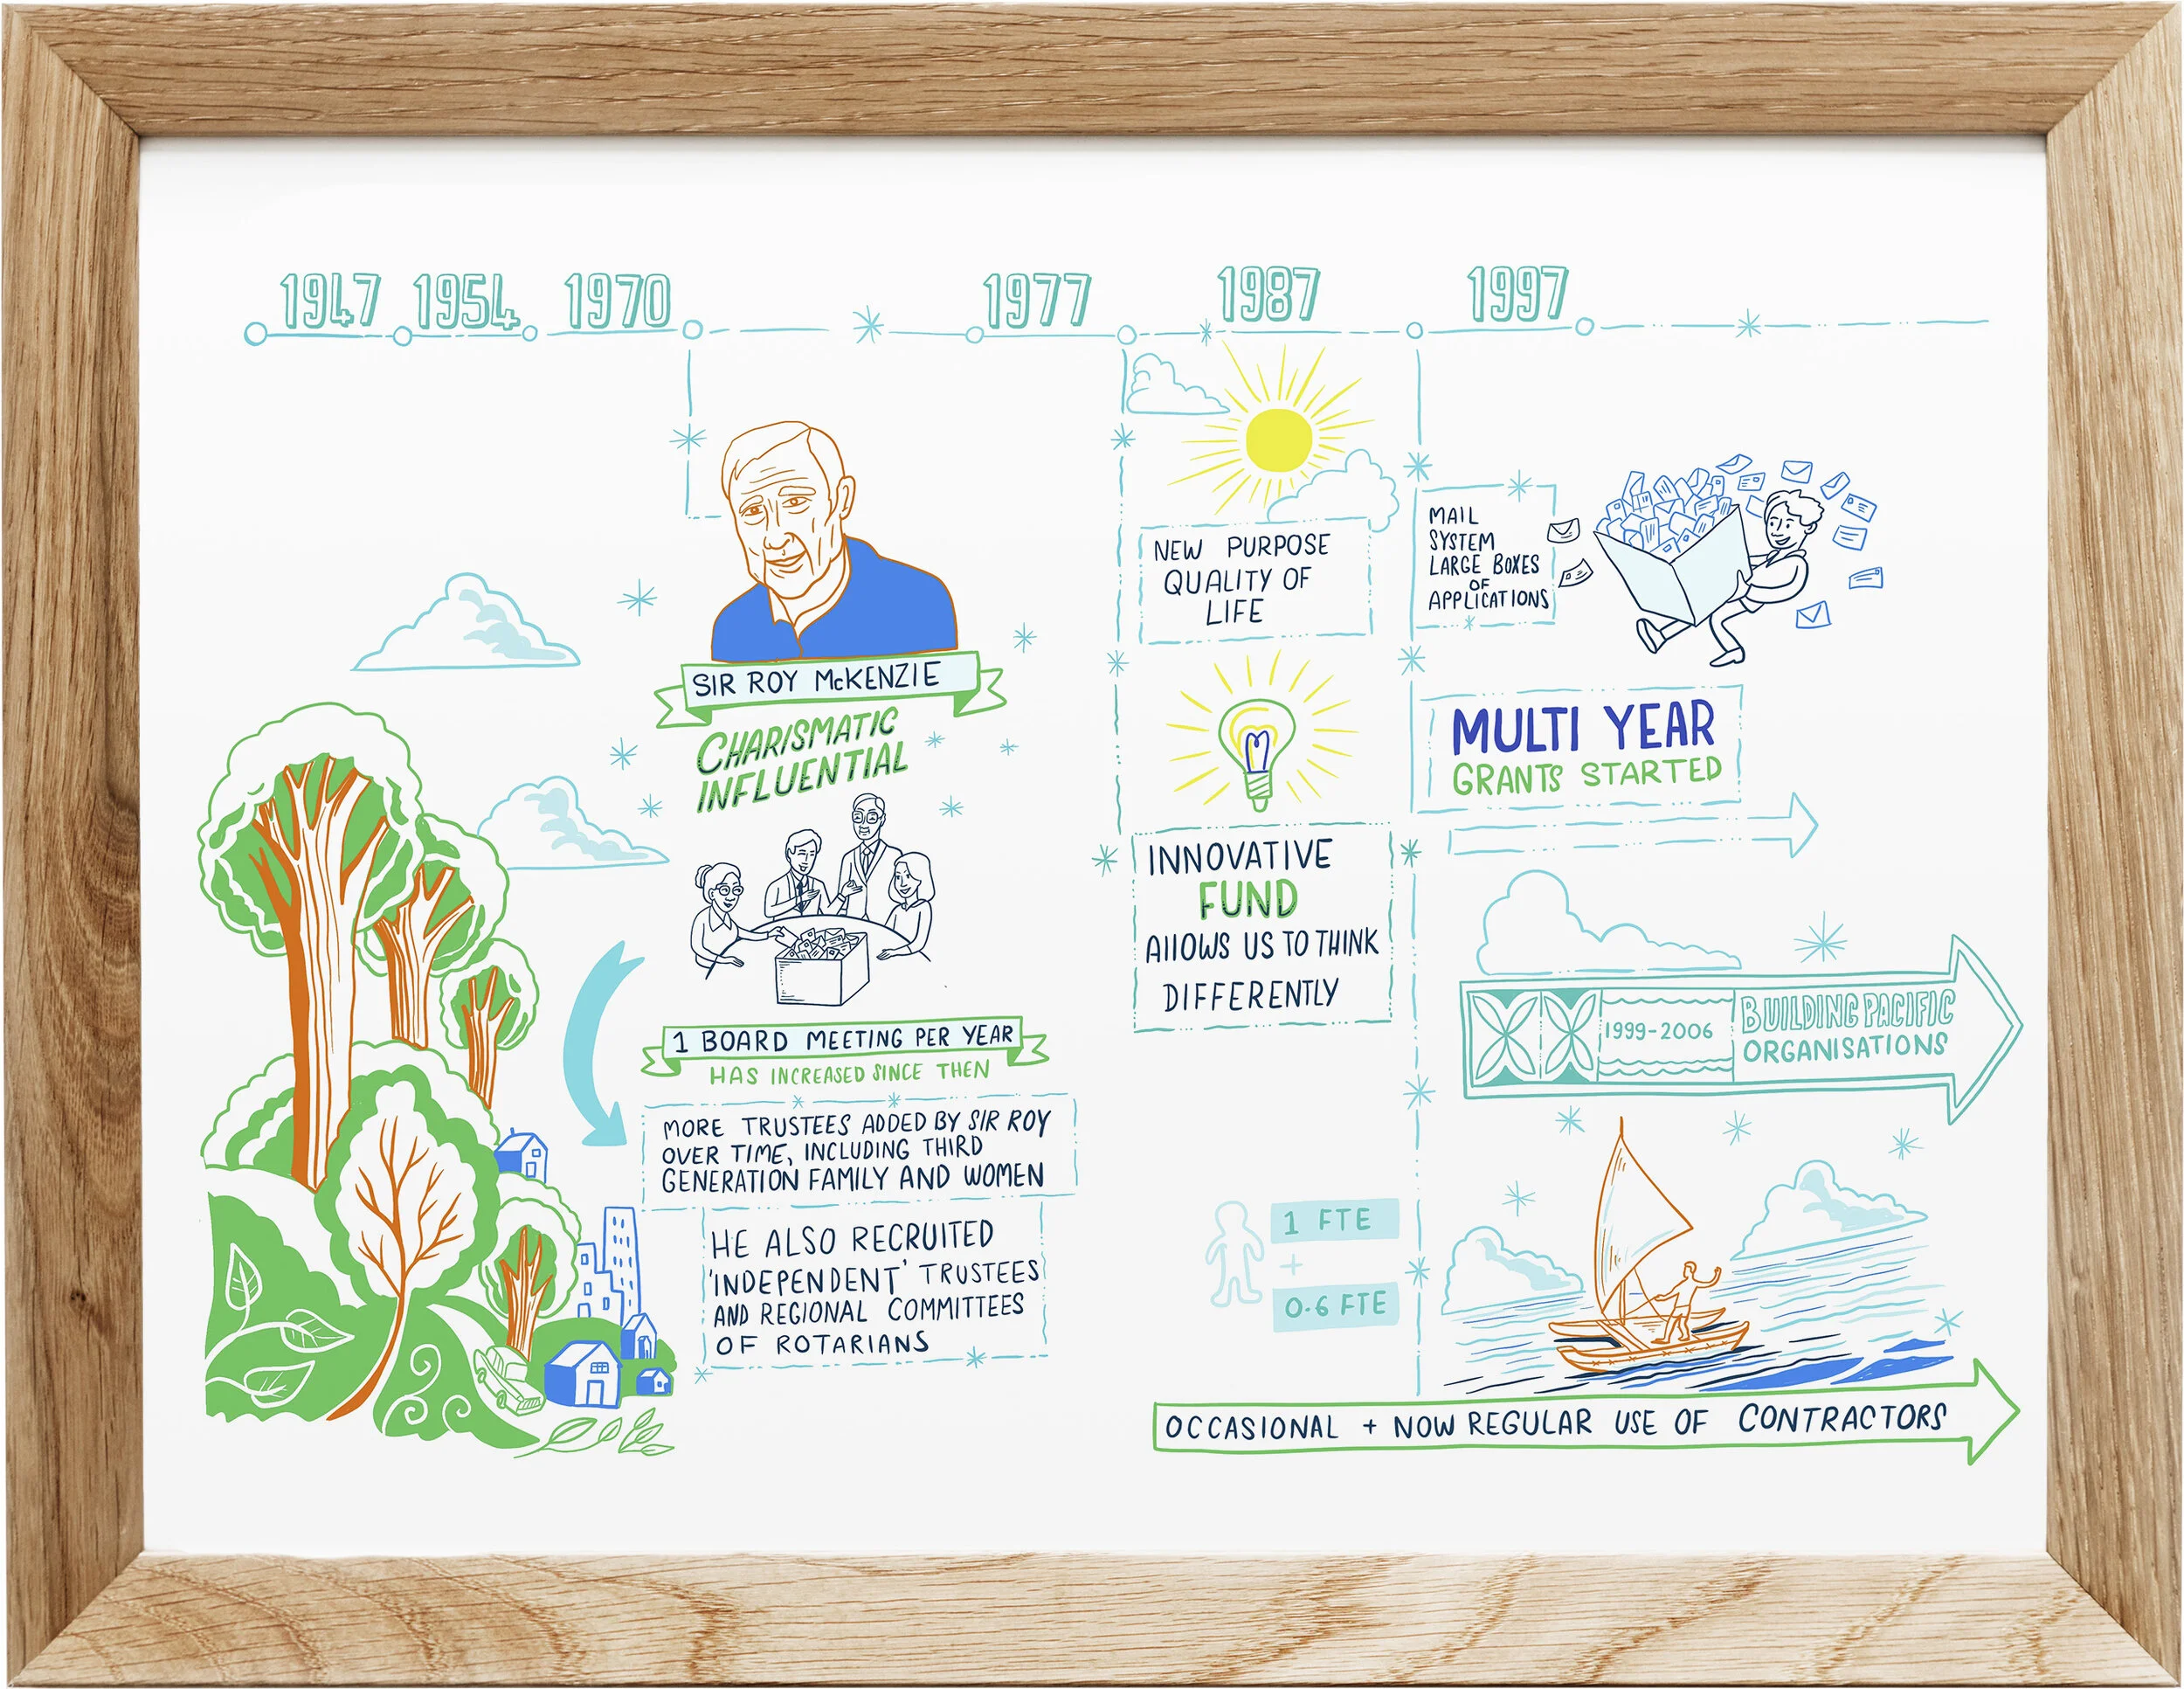 1947 1954 1970 1977 1987 1997
SIR ROY McKENZIE
CHARISMATIC
INFLUENTIAL
1 BOARD MEETING PER YEAR
HAS INCREASED SINCE THEN
MORE TRUSTEES ADDED BY SIR ROY
OVER TIME, INCLUDING THIRD
GENERATION FAMILY AND WOMEN
HE ALSO RECRUITED
'INDEPENDENT' TRUSTEES
AND REGIONAL COMMITTEES
OF ROTARIANS
NEW PURPOSE
QUALITY OF
LIFE
INNOVATIVE
FUND
AllOWS US TO THINK
DIFFERENTLY
1 FTE
+
0.6 FTE
MAIL
SYSTEM
LARGE BOXES
OF
APPLICATIONS
MULTI YEAR
GRANTS STARTED
1999-2006
BUILDING PACIFIC
ORGANISATIONS
OCCASIONAL + NOW REGULAR USE OF CONTRACTORS